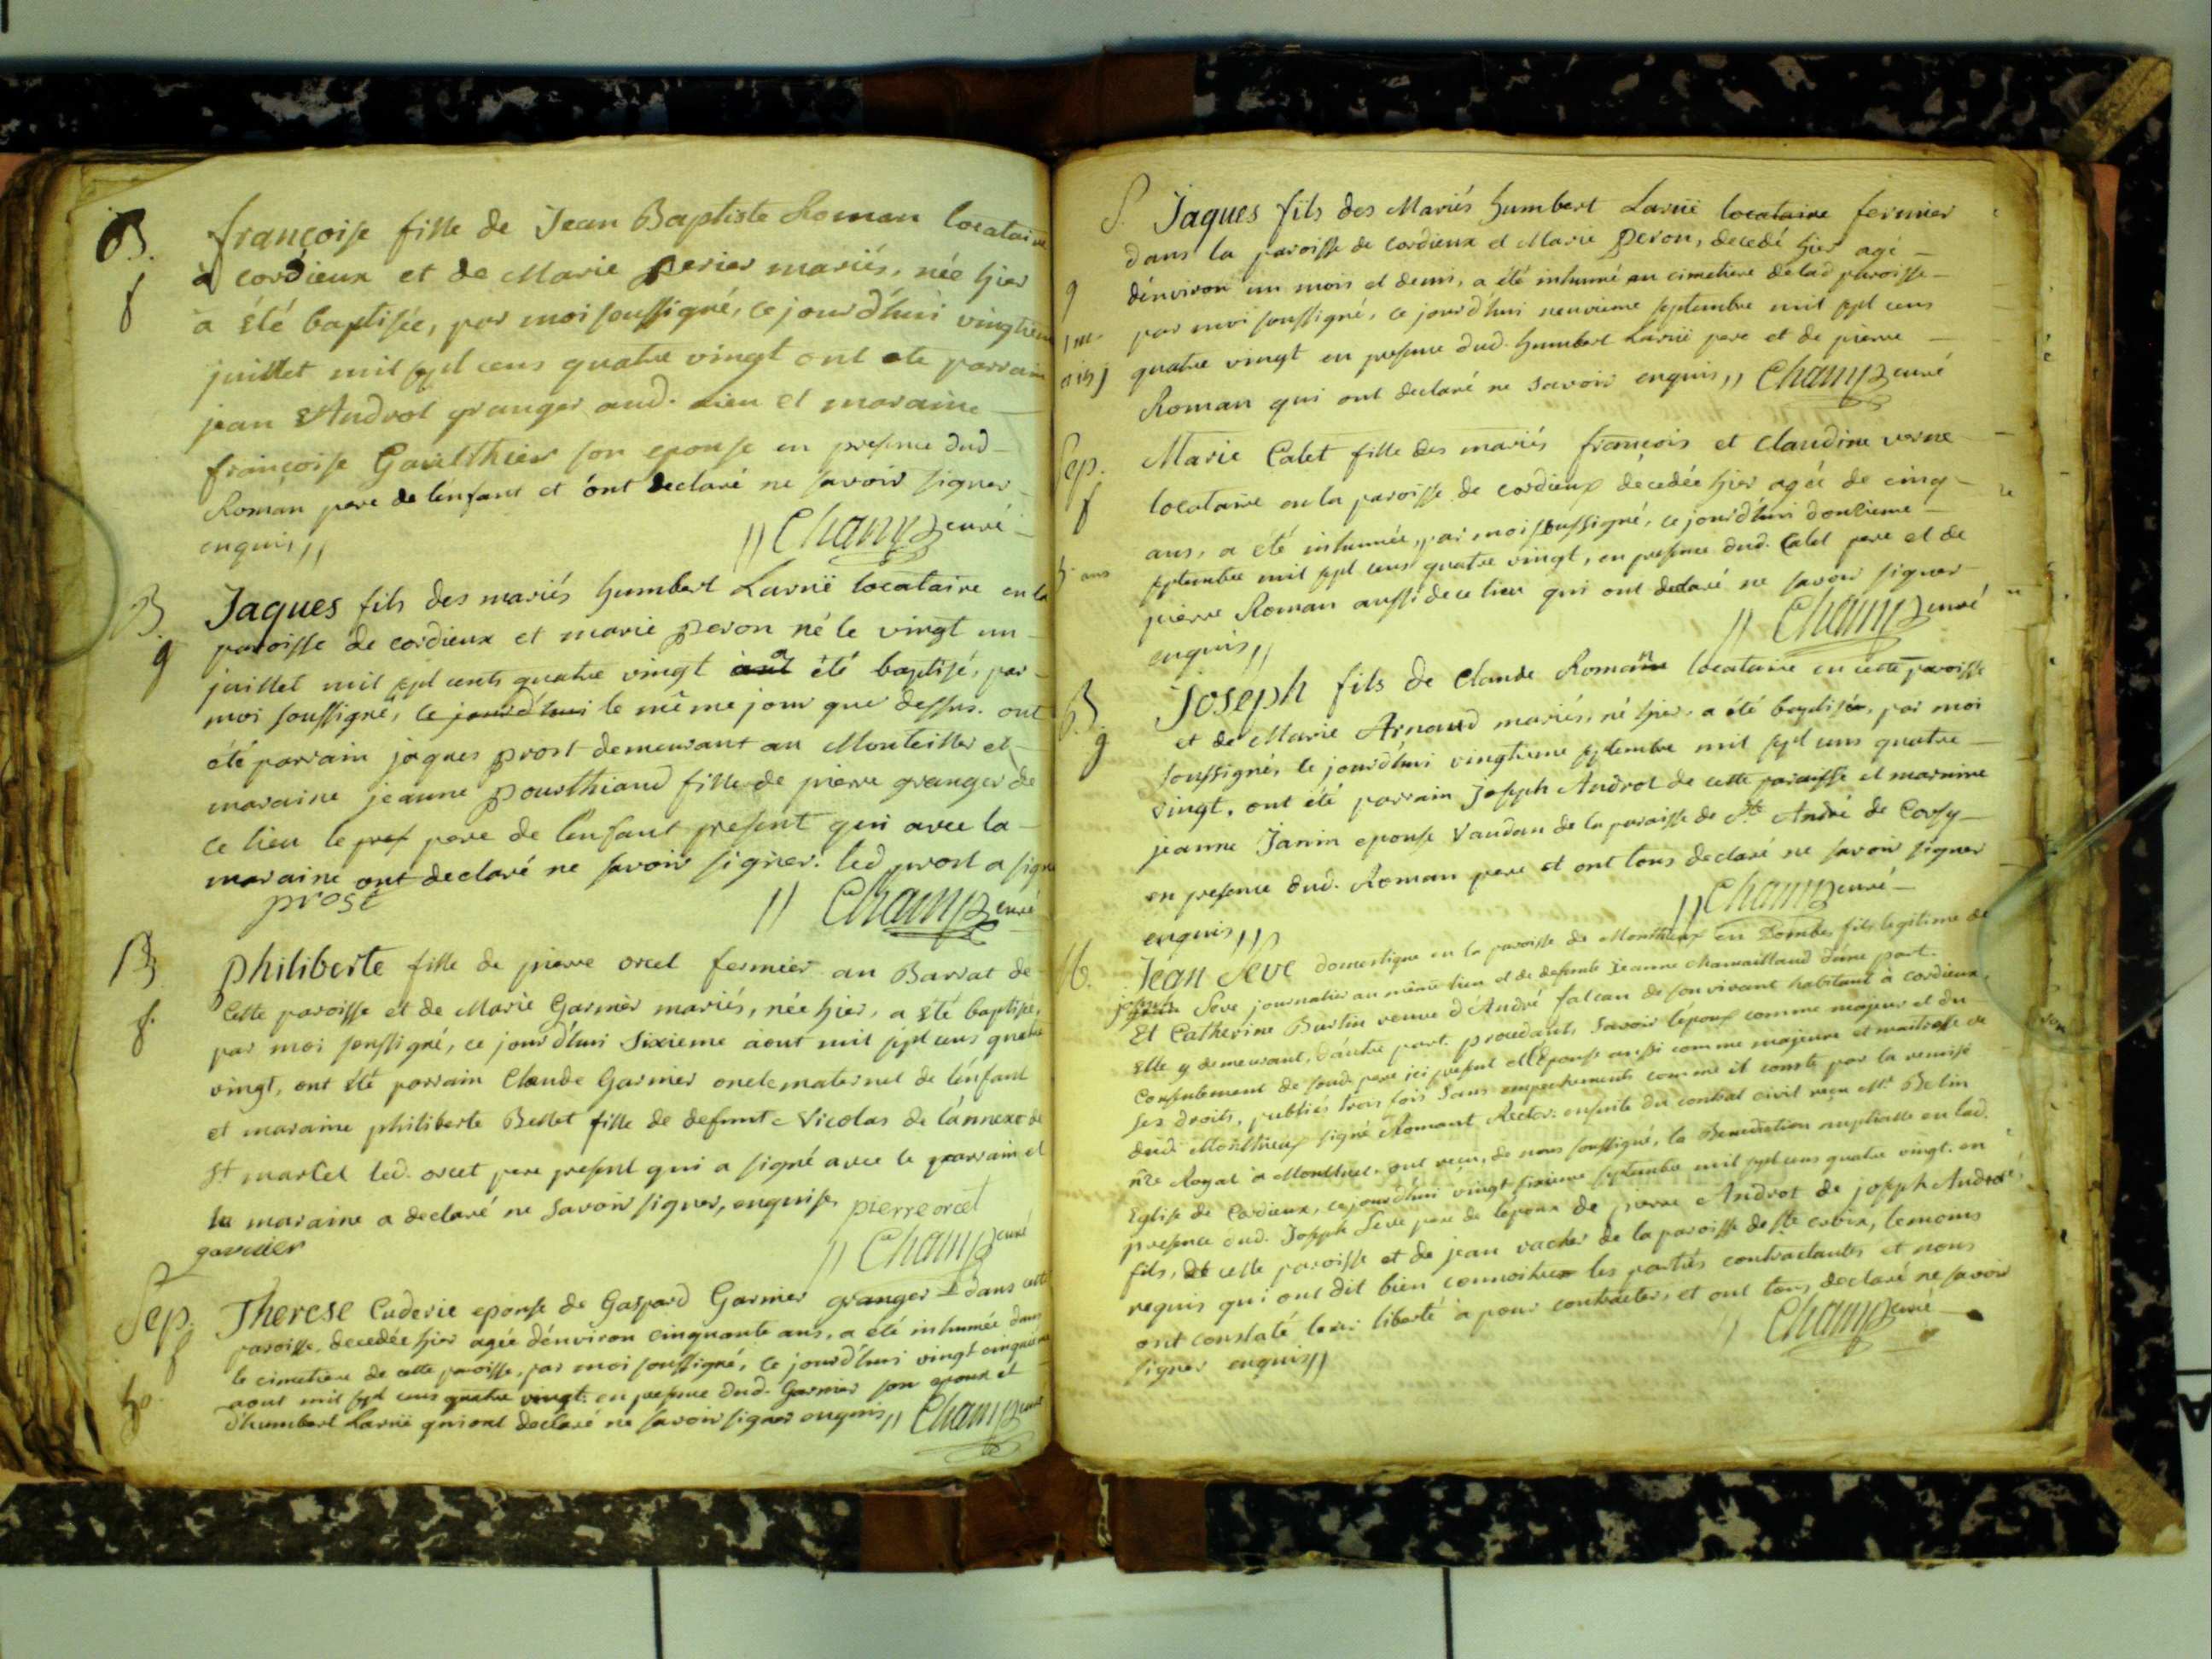 B. françoise fille de Jean Baptiste Roman locataire
f a cordieux et de Marie perier mariés, née hier
a été baptisée, par moi soussigné, ce jourd'hui vingtieme
juillet mil sept cens quatre vingt ont ete parrain
jean Androt granger aud. lieu et maraine
françoise Gaulthier son epouse en presence dud
Roman pere de l'enfant et ont declaré ne savoir signer
enquis // Champ curé
B. Jaques fils des mariés humbert Larüe locataire en la
g paroisse de cordieux et marie peron né le vingt un
juillet mil sept cents quatre vingt a été baptisé, par
moi soussigné, ce jourd'hui le même jour que dessus. ont
été parrain jaques prost demeurant au Monteiller et
maraine jeanne pourthiaud fille de pierre granger de
ce lieu le pres pere de l'enfant present qui avec la
maraine ont declaré ne savoir signer. led prost a signé
prost // Champ curé
B philiberte fille de pierre orcel fermier au Barrat de
f. Cette paroisse et de Marie Garnier mariés, née hier, a été baptisée,
par moi soussigné, ce jourd'hui sixieme aout mil sept cens quatre
vingt, ont été parrain Claude Garnier oncle maternel de l'enfant
et maraine philiberte Bellet fille de defunt Nicolas de l'annexe de
St marcel led. orcet pere present qui a signé avec le parrain et
la maraine a declaré ne savoir signer, enquise. pierre orcel
garnier // Champ curé
Sep. Therese Cuderie epouse de Gaspard Garnier granger dans cette
f paroisse, decedée hier agée d'environ cinquante ans, a été inhumée dans
le cimetiere de cette paroisse, par moi soussigné, ce jourd'hui vingt cinquieme
50. aout mil sept cens quatre vingt en presence dud. Garnier son epoux et
d'humbert Larüe qui ont declaré ne savoir signer enquis // Champ curé
S. Jaques fils des Mariés humbert Larüe locataire fermier
dans la paroisse de cordieux et Marie peron, decedé hier agé
g d'environ un mois et demi, a été inhumé au cimetiere de lad paroisse
1 m. par moi soussigné, ce jourd'hui neuvieme septembre mil sept cens
quatre vingt en presence dud. humbert Larüe pere et de pierre
Roman qui ont declaré ne savoir enquis // Champ curé
Sep. Marie Calet fille des mariés françois et Claudine verne
f locataire en la paroisse de cordieux décedée hier agée de cinq
ans, a été inhumée, par moi soussigné, ce jourd'hui douzieme
5 ans septembre mil sept cens quatre vingt, en presence dud. Calet pere et de
pierre Roman aussi de ce lieu qui ont declaré ne savoir signer
enquis // Champ curé
B. Joseph fils de Claude Roman locataire en cette paroisse
g et de Marie Arnaud mariés, né hier, a été baptisé, par moi
soussigné, le jourd'hui vingtieme septembre mil sept cens quatre
vingt, ont été parrain Joseph Androt de cette paroisse et maraine
jeanne Janin epouse Vaudan de la paroisse de St André de Corsy
en presence dud. Roman pere et ont tous declaré ne savoir signer
enquis // Champ curé
M. Jean Seve domestique en la paroisse de Monthieux en Dombes fils legitime de
joseph Seve journalier au même lieu et de defunte Jeanne Chamaillaud d'une part.
Et Catherine Burtin veuve d'André falcan de son vivant habitant à cordieux,
Elle y demeurant, d'autre part. procedants, savoir l'epoux comme majeur et du
Consentement de soud. pere ici present et l'Epouse aussi comme majeure et maitresse de
ses droits, publiés trois fois sans empechements comme il conste par la remise
dud. Monthieux signé Romant Recter. ensuite du contrat civil reçu Mr. Belin
nre Royal à Montluel. ont reçu, de nous soussigné, la Benediction nuptialle en lad.
Eglise de Cordieux, ce jourd'hui vingt sixieme septembre mil sept cens quatre vingt. en
presence dud. Joseph Seve pere de l'epoux de pierre Androt de joseph Androt,
fils, de cette paroisse et de jean vacher de la paroisse de ste croix, temoins
requis qui ont dit bien connoitre les parties contractantes et nous
ont constaté leur liberté à pour contracter, et ont tous declaré ne savoir
signer enquis // Champ curé